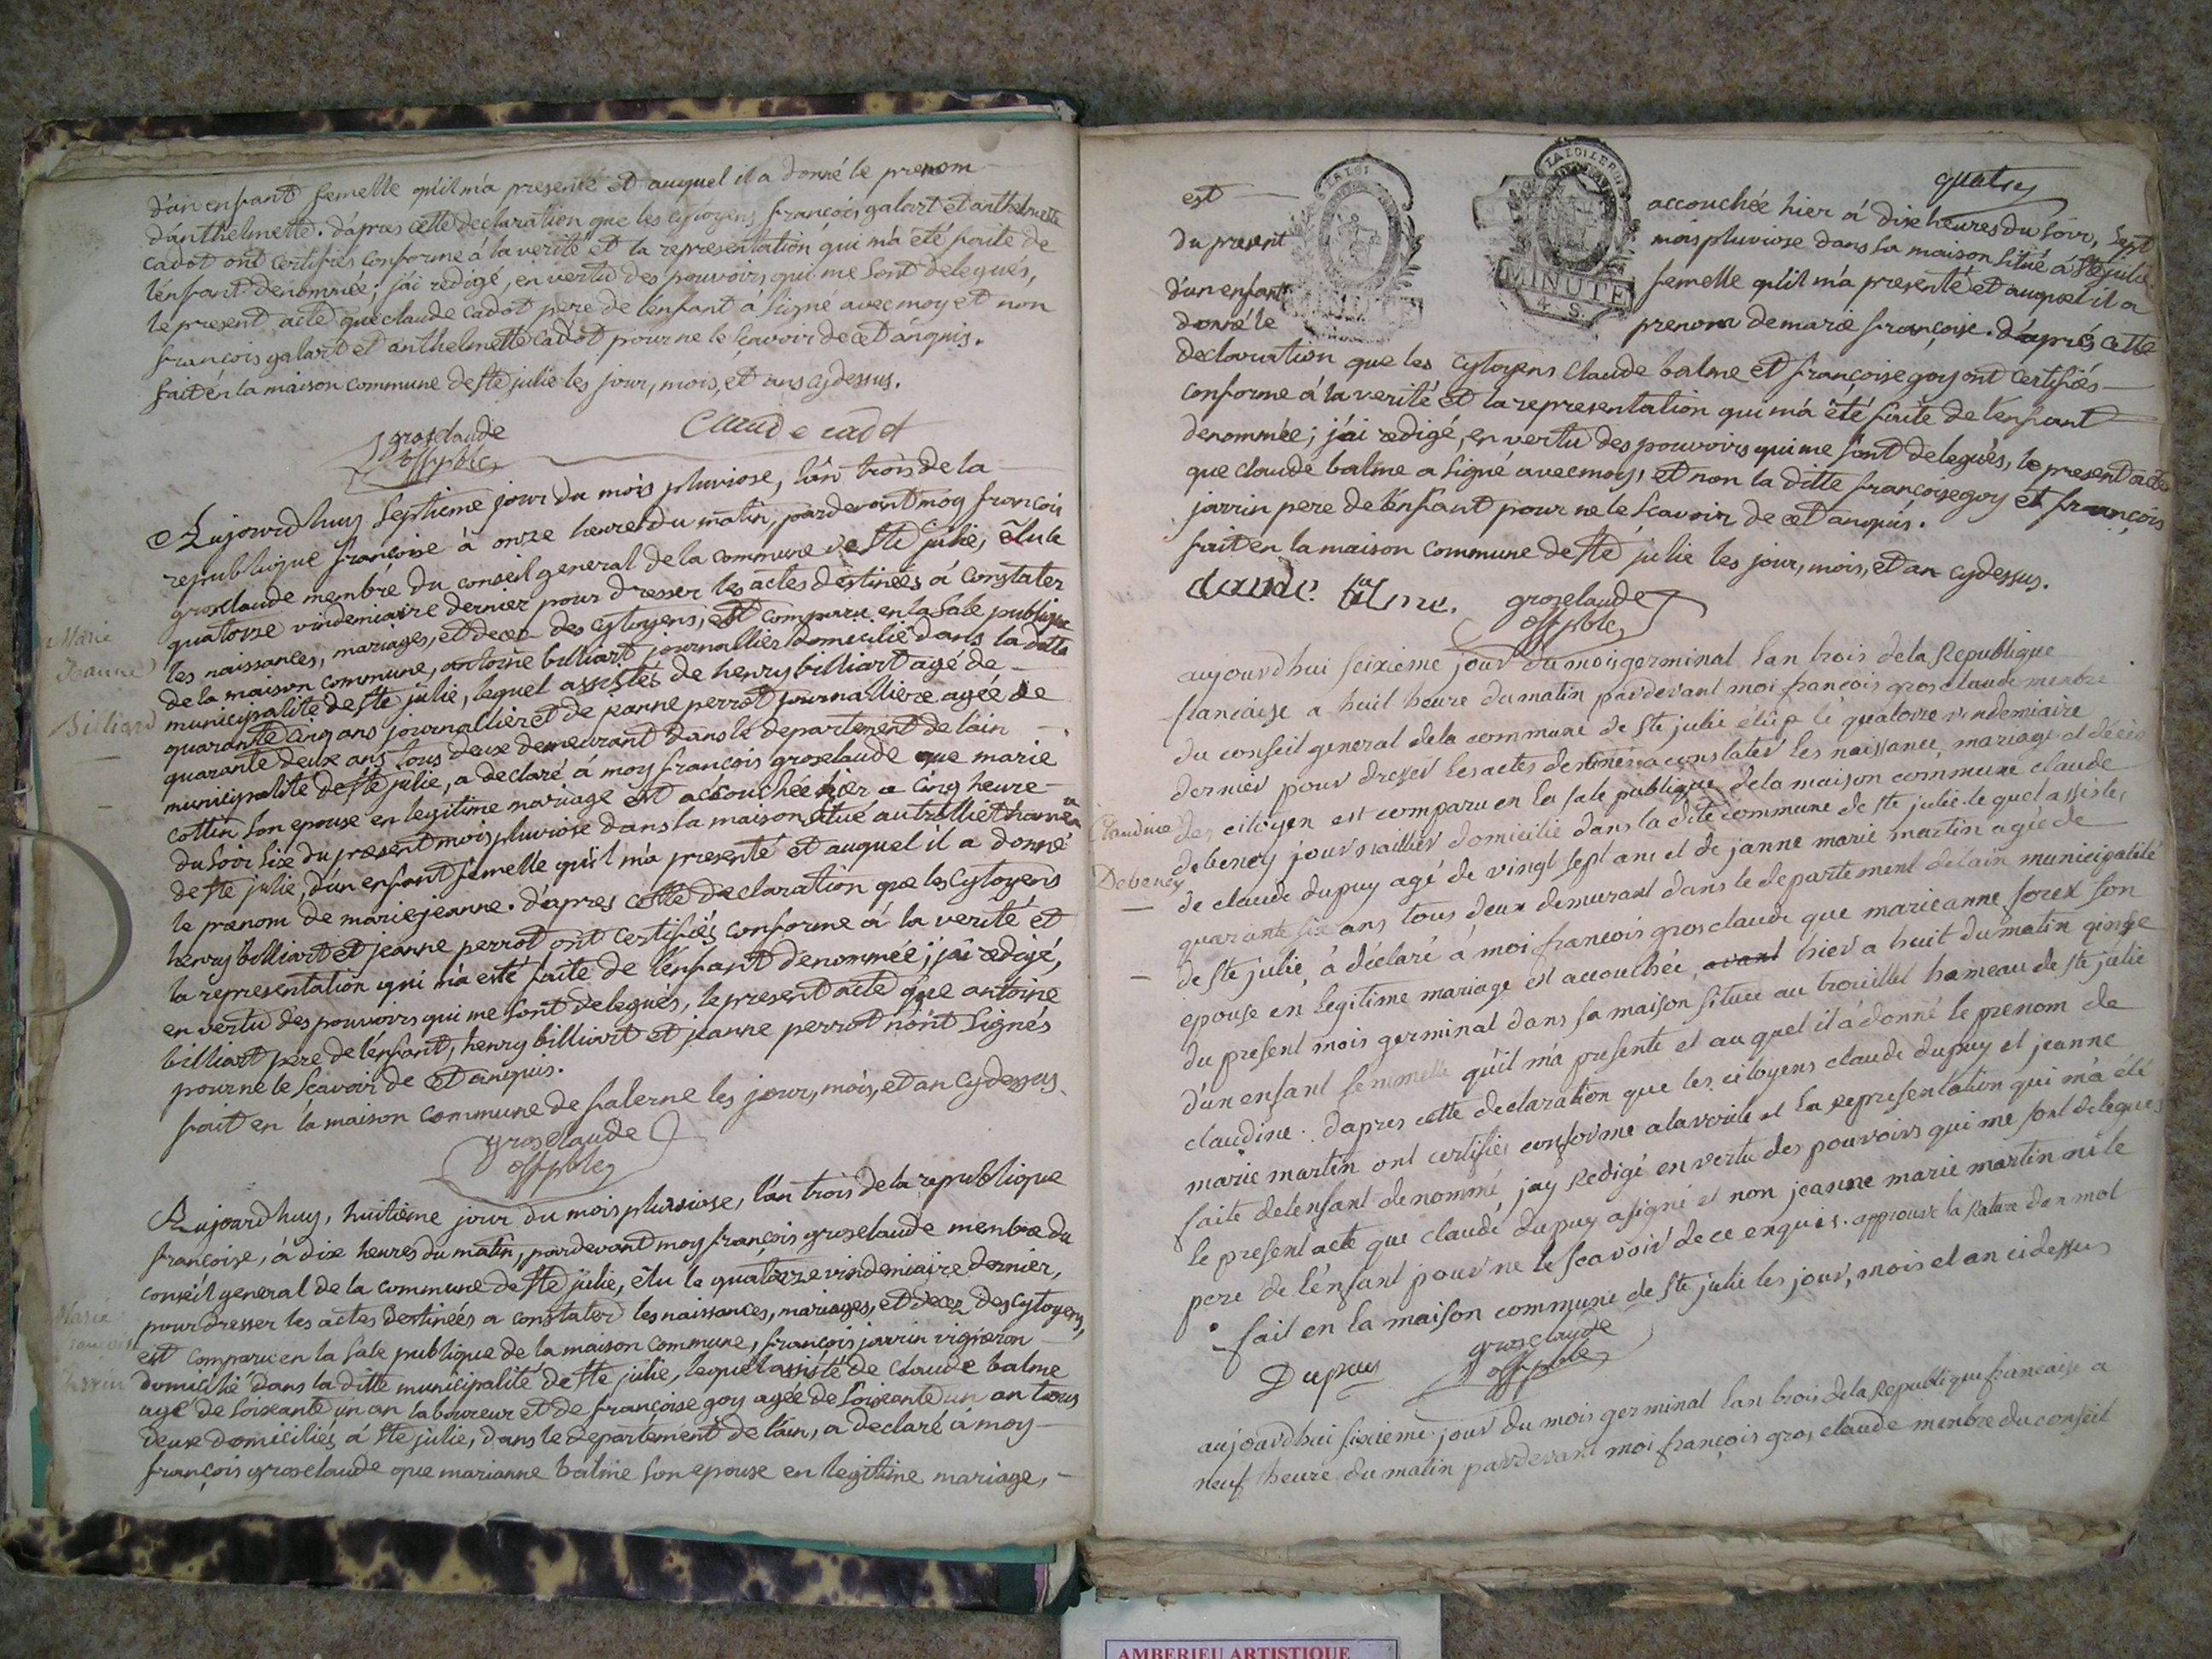 d'un enfant femelle qu'il m'a presenté et auquel il a donné le prenom
d'anthelmette. d'apres cette declaration que les cytoyens françois galart et anthelmette
cadot ont certifiés conforme á la verité et la representation qui m'a été faite de
l'enfant denommée; j'ai redigé, en vertu des pouvoirs qui me sont delegués,
le present acte que claude cadot pere de l'enfant á signé avec moy et non
françois galart et anthelmette cadot pour ne le sçavoir de cet anquis.
fait en la maison commune de ste julie les jour, mois, et ans cydessus.
grosclaude
off pblc
Claude cadot
Aujourdhuy septieme jour du mois pluviose, l'an trois de la
republique françoise á onze heure du matin, pardevant moy françois
grosclaude membre du conseil general de la commune de ste julie, élu le
quatorze vindemiaire dernier pour dresser les actes destinées á constater
les naissances, mariages, et decez des cytoyens, est comparu en la sale publique
de la maison commune, antoine billiart journallier domicilié dans la ditte
municipalité de ste julie, lequel assistés de henry billiart agé de
quarante cinq ans journallier et de jeanne perrot journalliere agée de
quarante deux ans tous deux demeurant dans le departement de l'ain
municipalité de ste julie, a declaré á moy françois grosclaude que marie
collin son epouse en legitime mariage est accouchée hier a cinq heure
du soir six du present mois pluviose dans la maison situé au trolliet hameau
de ste julie, d'un enfant femelle qu'il m'a presenté et auquel il a donné
le prenom de marie jeanne. d'apres cette declaration que les cytoyens
henry billiart et jeanne perrot ont certifiés conforme á la verité et
la representation qui m'a eté faite de l'enfant denommée; j'ai redigé,
en vertu des pouvoirs qui me sont delegués, le present acte que antoine
billiart pere de l'enfant, henry billiart et jeanne perrot n'ont signés
pour ne le sçavoir de et anquis.
fait en la maison commune de salerne les jour, mois, et an cydessus.
grosclaude
off pblc
Marie
Jeanne
Billiard
Aujourdhuy, huitieme jour du mois pluviose, l'an trois de la republique
françoise, á dix heures du matin, pardevant moy françois grosclaude membre du
conseil general de la commune de ste julie, élu le quatorze vindemiaire dernier,
pour dresser les actes destinées a constater les naissances, mariages, et decez des cytoyens,
est comparu en la sale publique de la maison commune, françois jarrin vigneron
domicilié dans la ditte municipalité de ste julie, lequel assisté de claude balme
agé de soixante un an laboureur et de françoise goy agée de soixante un an tous
deux domiciliés á ste julie, dans le departement de l'ain, a declaré á moy
françois grosclaude que marianne balme son epouse en legitime mariage,
Marie
françoise
Jarrin
quatre
est accouchée hier á dix heures du soir, sept
du present mois pluviose dans sa maison situé á ste julie
d'un enfant femelle qu'il m'a presenté et auquel il a
donné le prenom de marie françoise. d'aprés cette
LA LOI LE ROI
MINUTE
4. S.
declaration que les cytoyens claude balme et françoise goy ont certifiés
conforme á la verité et la representation qui m'a été faite de l'enfant
denommée; j'ai redigé, en vertu des pouvoirs qui me sont delegués, le present acte
que claude balme a signé avec moy, et non la ditte françoise goy et françois
jarrin pere de l'enfant pour ne le sçavoir de cet anquis.
fait en la maison commune de ste julie les jour, mois, et an cydessus.
claude balme.
grosclaude
off pblc
aujourdhui seixieme jour du mois germinal l'an trois de la Republique
francaise a huit heure du matin pardevant moi françois grosclaude menbre
du conseil general de la commune de ste julie élu le quatorze vindemiaire
dernier pour dresser les actes destinés a constater les naissance, mariage et décés
des citoyen est comparu en la sale publique de la maison commune claude
debeney journaillier domicilié dans la dite commune de ste julie le quel assistes
de claude dupuy agé de vingt sept ans et de janne marie martin agée de
quarante six ans tous deux demurant dans le departement de lain municipalité
de ste julie, á déclaré á moi françois grosclaude que marieanne forex son
epouse en legitime mariage est accouchée avant hier a huit du matin qinse
du present mois germinal dans sa maison situee au trouillet hameau de ste julie
d'un enfant femmelle qu'il m'a presente et au quel il á donné le prenom de
claudine. dapres cette declaration que les citoyens claude dupuy et jeanne
marie martin ont certifies conforme a la verite et la representation qui m'a été
faite de lenfant denommé, jay Redigé en vertu des pouvoirs qui me sont delegues
le present acte que claude dupuy a signé et non jeanne marie martin ni le
pere de l'enfant pour ne le scavoir de ce enquis. approuve la rature d'un mot
fait en la maison commune de ste julie les jour, mois et an cidessus
Dupuy
grosclaude
off pblc
Claudine
Debeney
aujourdhui sixieme jour du mois germinal l'an trois de la Republique francaise a
neuf heure du matin pardevant moi françois grosclaude menbre du conseil
AMBERIEU ARTISTIQUE